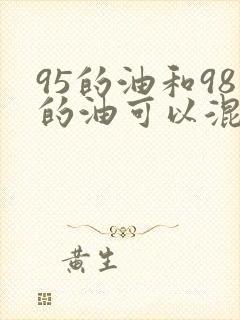 95的油和98
的油可以混
黄生